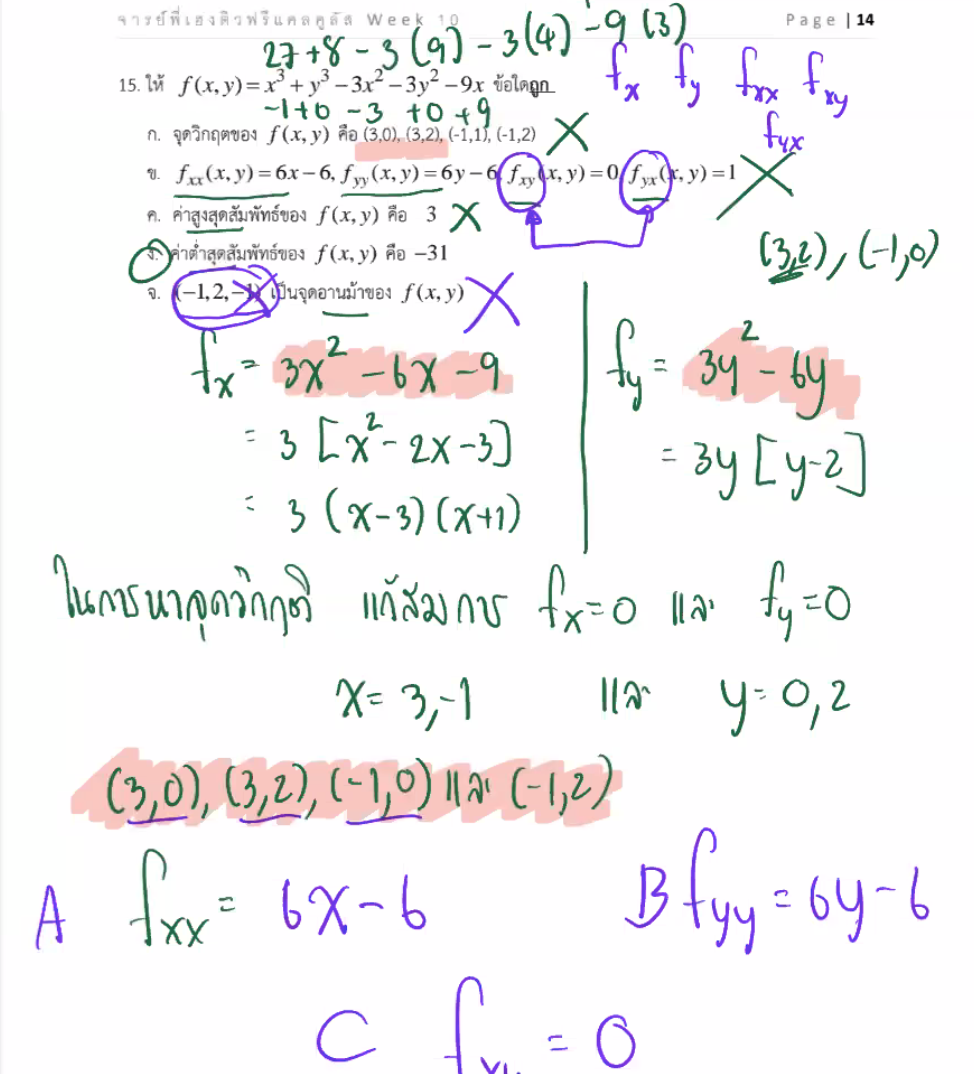 จารย์ที่เฮงติวฟรีแคลคูลัส Week 10 Page | 14
27 + 8 - 3 (9) - 3 (4) - 9 (3)
fx fy fxx fxy
15. ให้ f(x, y) = x³ + y³ - 3x² - 3y² - 9x ข้อใดถูก
-1 + 0 - 3 + 0 + 9
fyx
ก. จุดวิกฤตของ f(x, y) คือ (3,0), (3,2), (-1,1), (-1,2) X
ข. fxx(x, y) = 6x - 6, fyy(x, y) = 6y - 6, fxy(x, y) = 0, fyx(x, y) = 1 X
ค. ค่าสูงสุดสัมพัทธ์ของ f(x, y) คือ 3 X
(3,2), (-1,0)
ง. ค่าต่ำสุดสัมพัทธ์ของ f(x, y) คือ -31
จ. (-1, 2, -1) เป็นจุดอานม้าของ f(x, y) X
fx = 3x² - 6x - 9 fy = 3y² - 6y
= 3 [x² - 2x - 3] = 3y [y - 2]
= 3 (x - 3) (x + 1)
ในการหาจุดวิกฤติ แก้สมการ fx = 0 และ fy = 0
x = 3, -1 และ y = 0, 2
(3,0), (3,2), (-1,0) และ (-1,2)
A fxx = 6x - 6 B fyy = 6y - 6
C fxy = 0